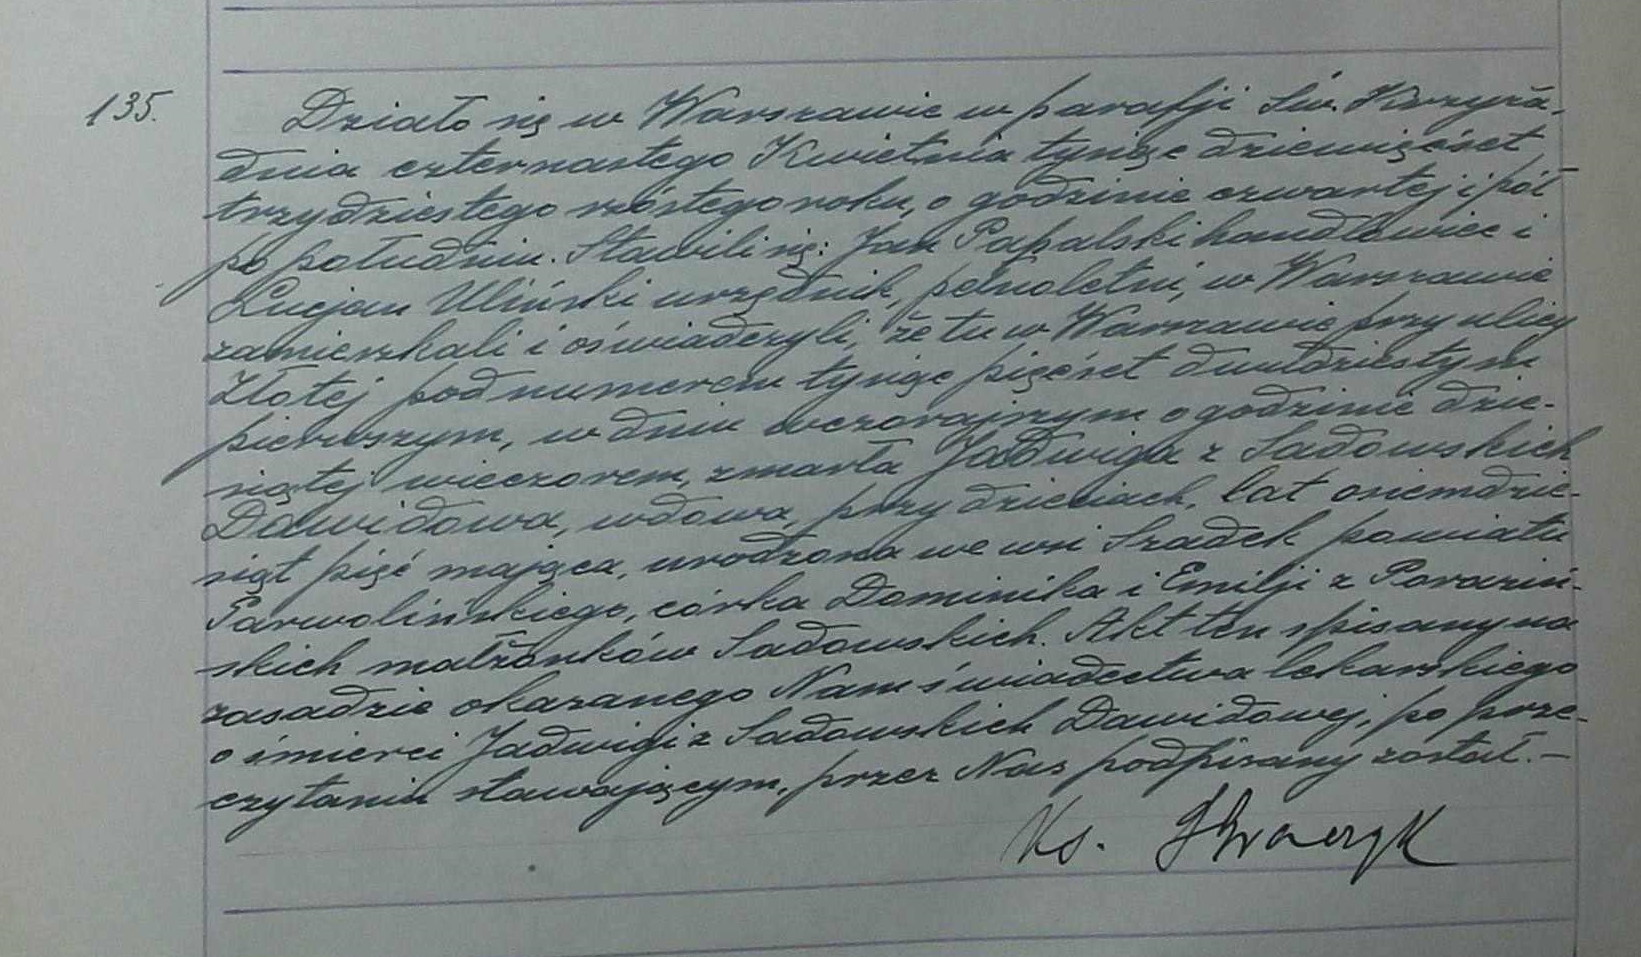 135.
Działo się w Warszawie w parafji Św. Krzyża,
dnia czternastego Kwietnia tysiąc dziewięćset
trzydziestego szóstego roku, o godzinie czwartej i pół
po południu. Stawili się: Jan Papalski handlowiec i
Lucjan Uliński urzędnik, pełnoletni, w Warszawie
zamieszkali i oświadczyli, że tu w Warszawie przy ulicy
Złotej pod numerem tysiąc pięćset dwudziestym
pierwszym, w dniu wczorajszym o godzinie dzie-
siątej wieczorem, zmarła Jadwiga z Sadowskich
Dawidowa, wdowa, przy dzieciach, lat osiemdzie-
siąt pięć mająca, urodzona we wsi Szadek powiatu
Garwolińskiego, córka Dominika i Emilji z
skich małżonków Sadowskich. Akt ten spisany na
zasadzie okazanego Nam świadectwa lekarskiego
o śmierci Jadwigi z Sadowskich Dawidowej, po prze-
czytaniu stawającym, przez Nas podpisany został.—
Ks.